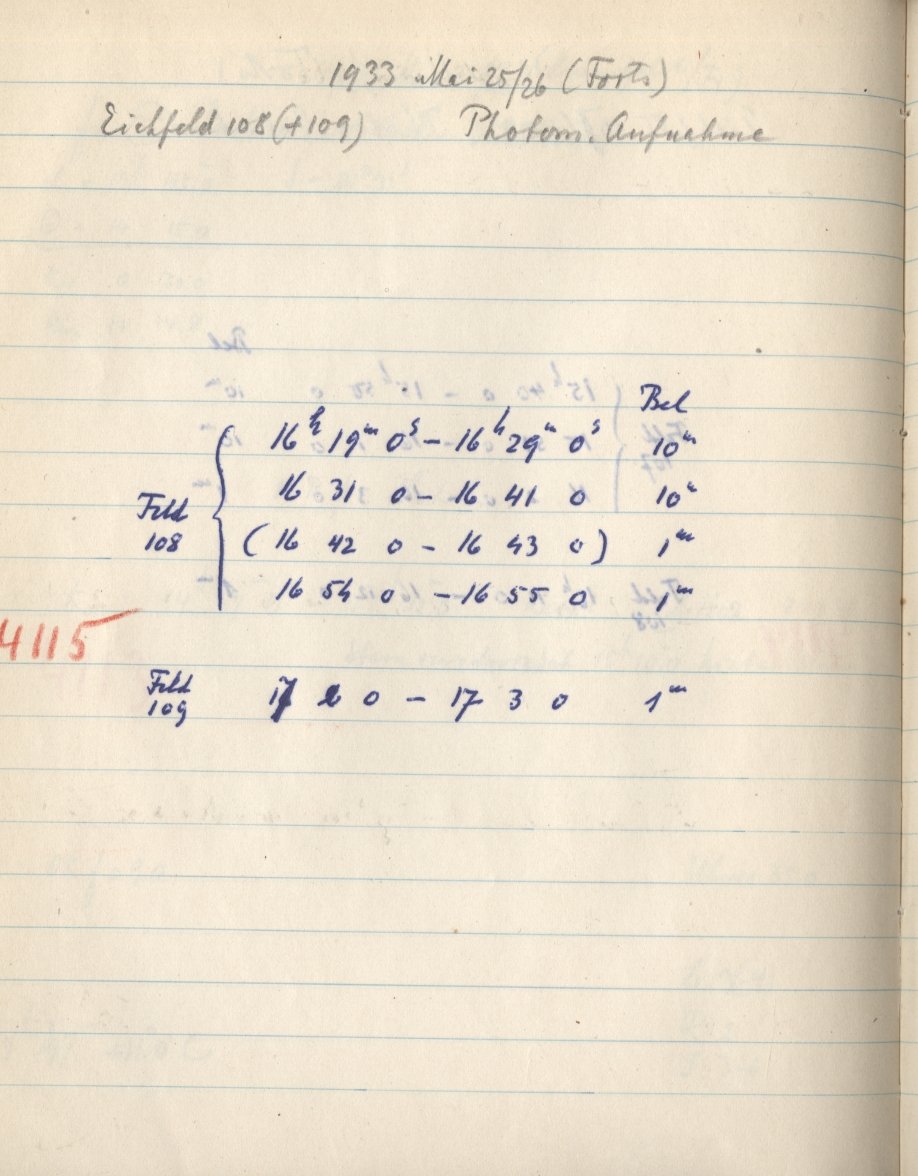 1933 Mai 25/26 (Forts.)
Eichfeld 108 (+109) Photom. Aufnahme
Bel
16h 19m 0s – 16h 29m 0s 10m
16 31 0 – 16 41 0 10m
Feld
108
(16 42 0 – 16 43 0) 1m
16 54 0 – 16 55 0 1m
4115
Feld
109
17 2 0 – 17 3 0 1m